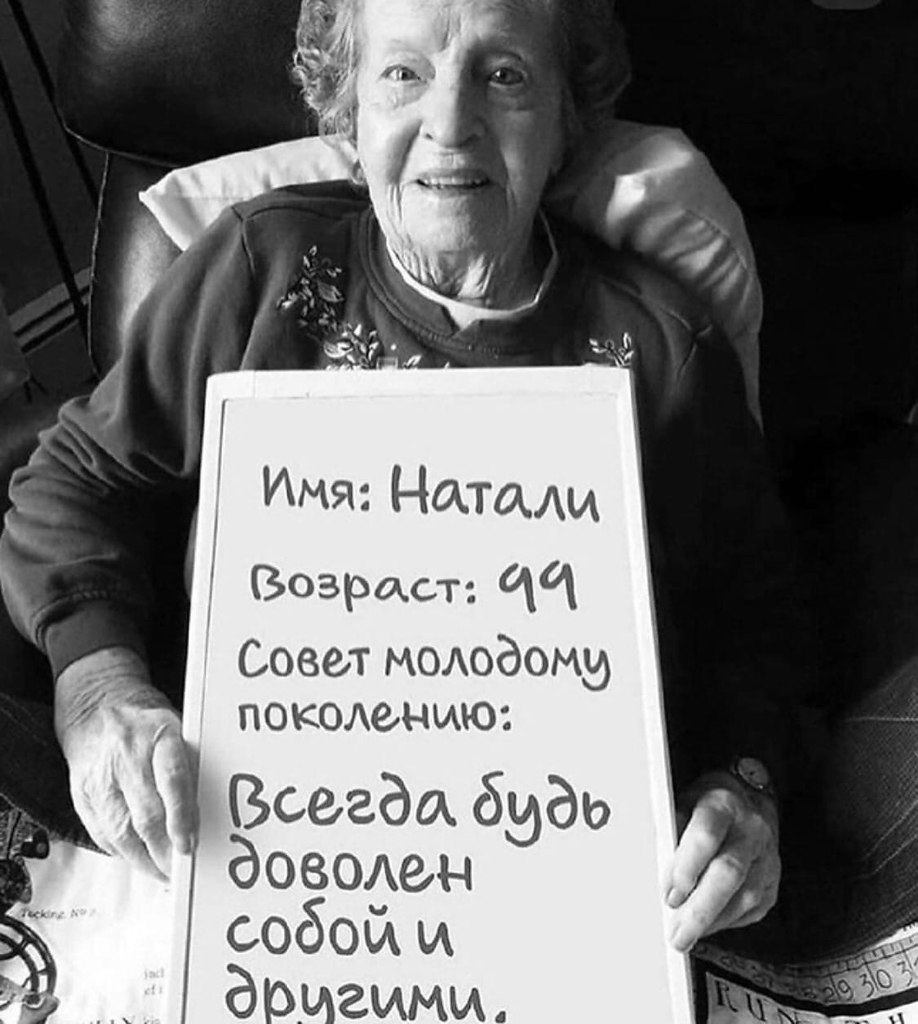 Имя: Натали
Возраст: 99
Совет молодому
поколению:
Всегда будь
доволен
собой и
другими.
29 30 3
RUN TH